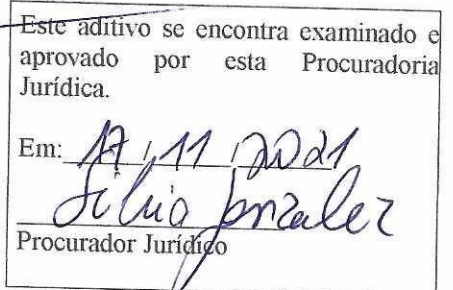 Este aditivo se encontra examinado e
aprovado por esta Procuradoria
Jurídica.
Em: 17 / 11 / 2021
Silvio Gonzalez
Procurador Jurídico